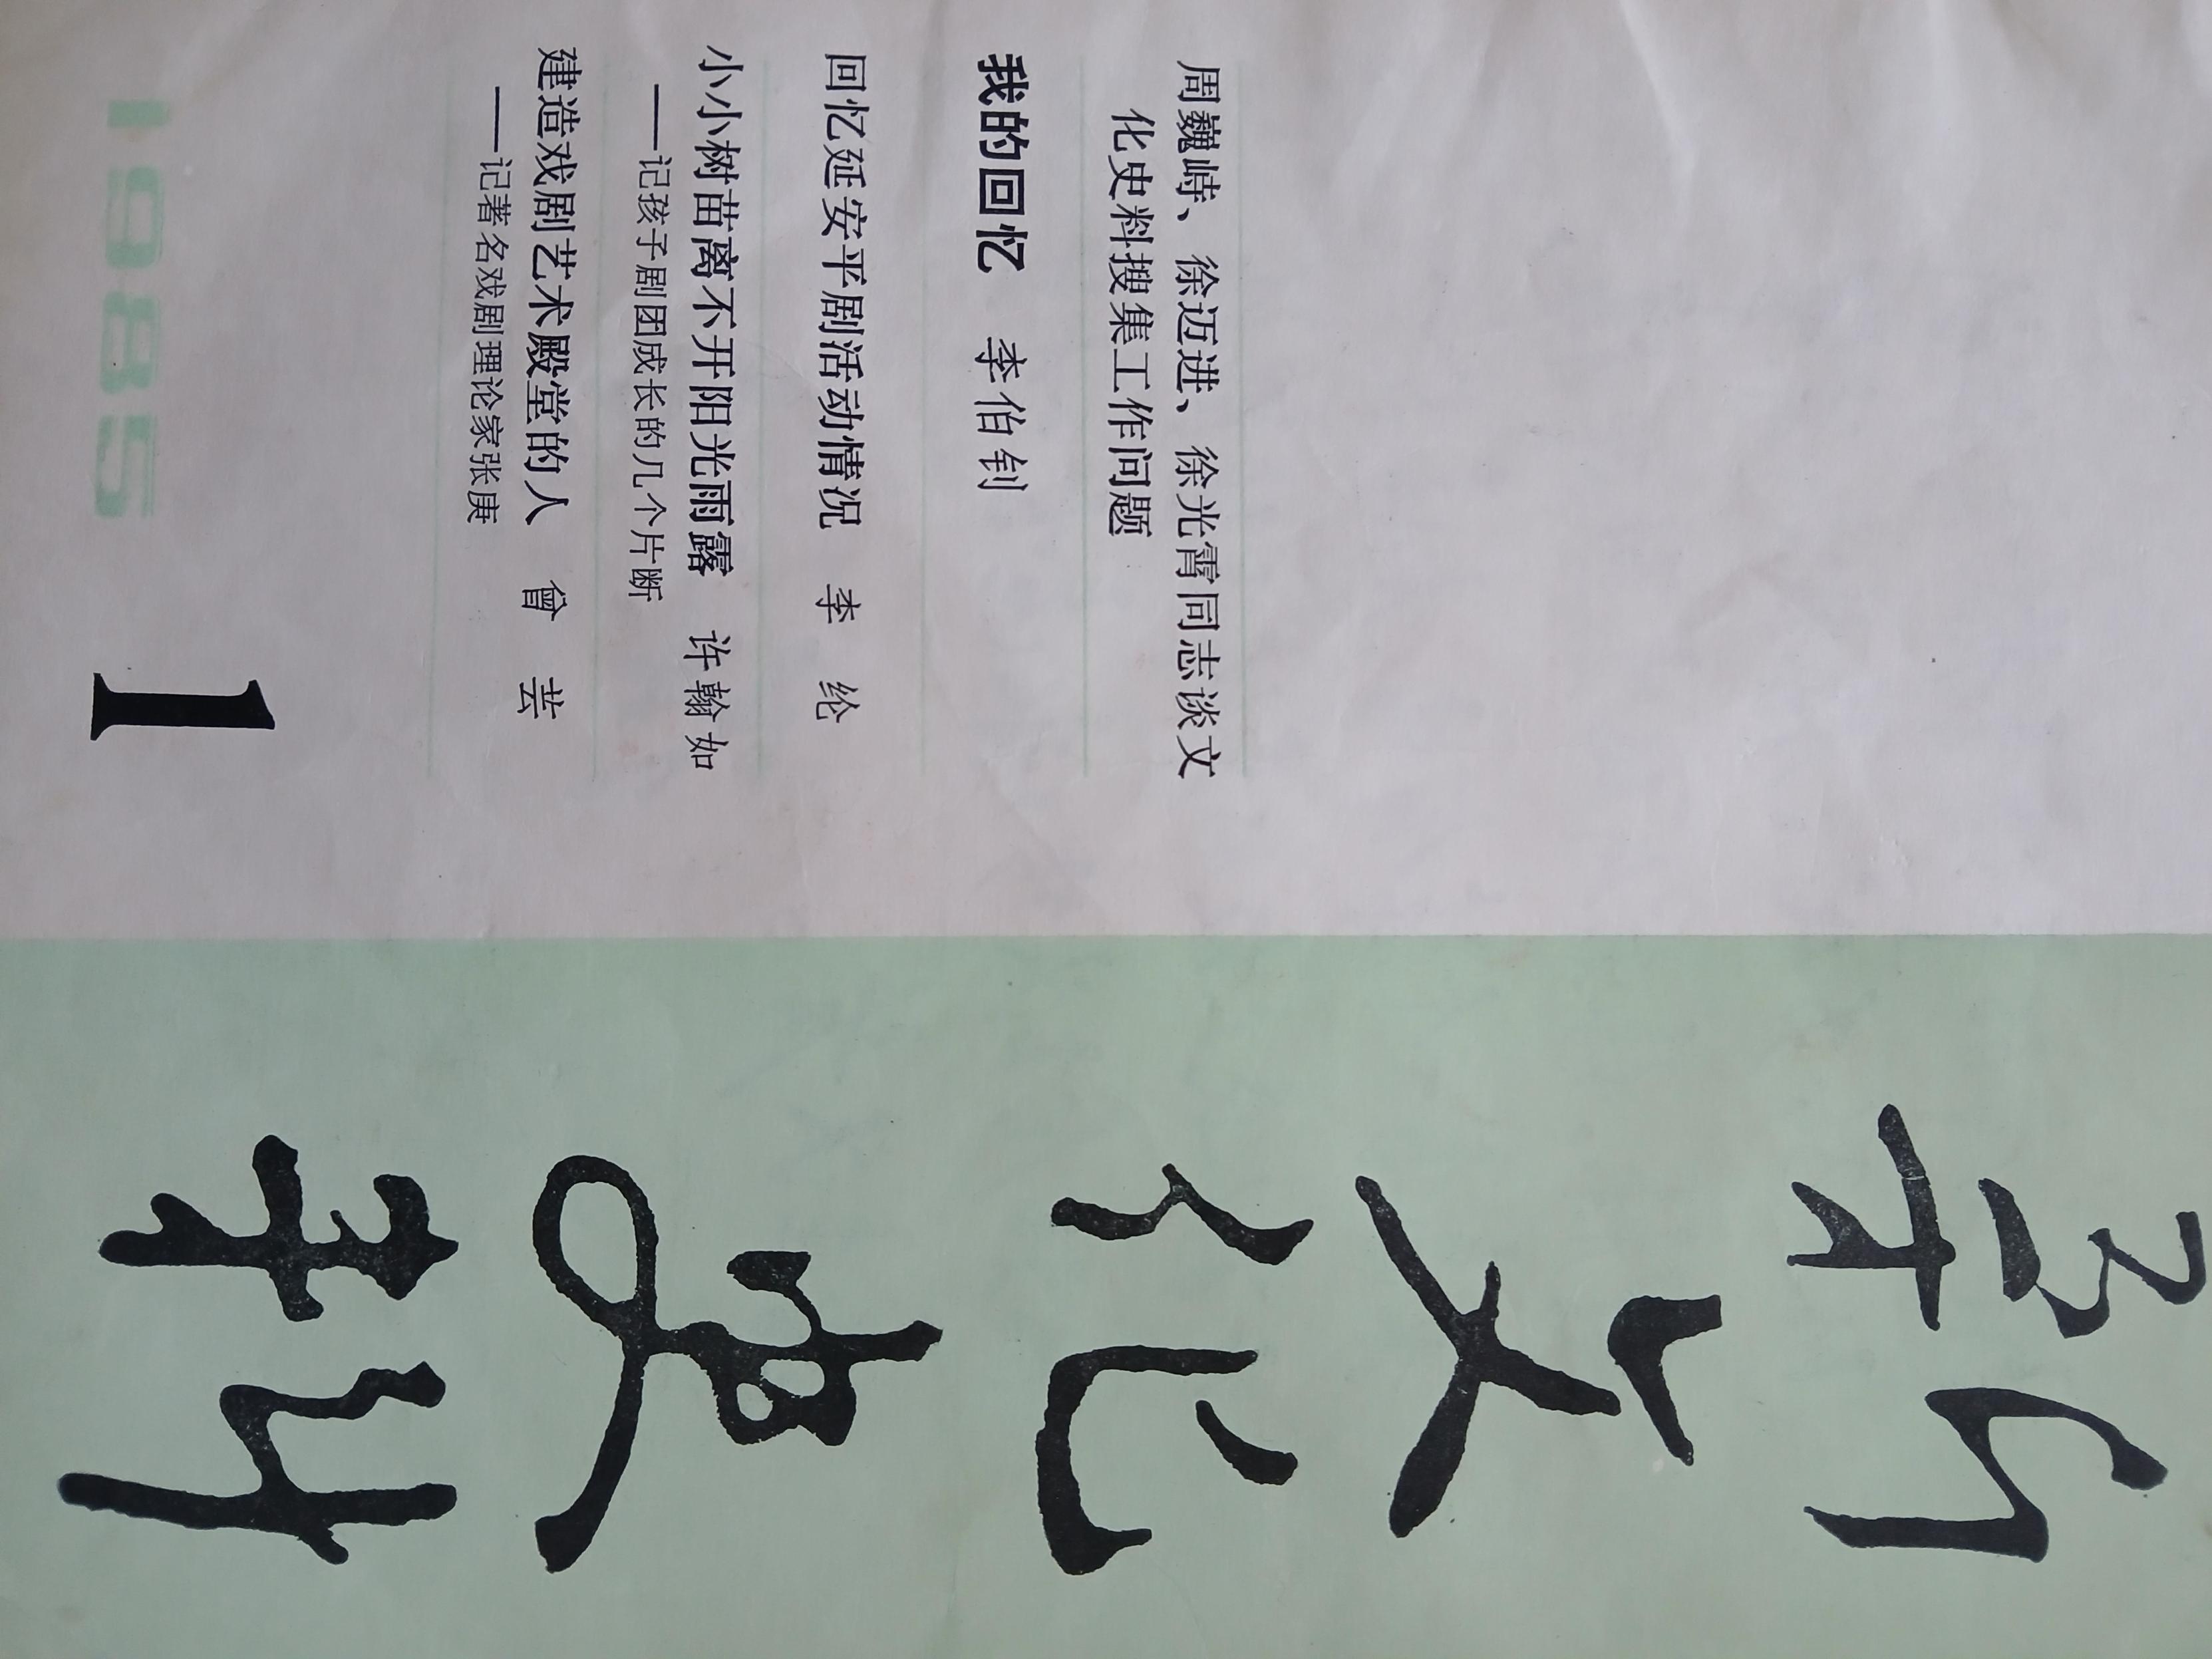 新文化史料
周巍峙、徐迈进、徐光霄同志谈文
化史料搜集工作问题
我的回忆 李伯钊
回忆延安平剧活动情况 李 纶
小小树苗离不开阳光雨露 许翰如
——记孩子剧团成长的几个片断
建造戏剧艺术殿堂的人 曾 芸
——记著名戏剧理论家张庚
1985
1